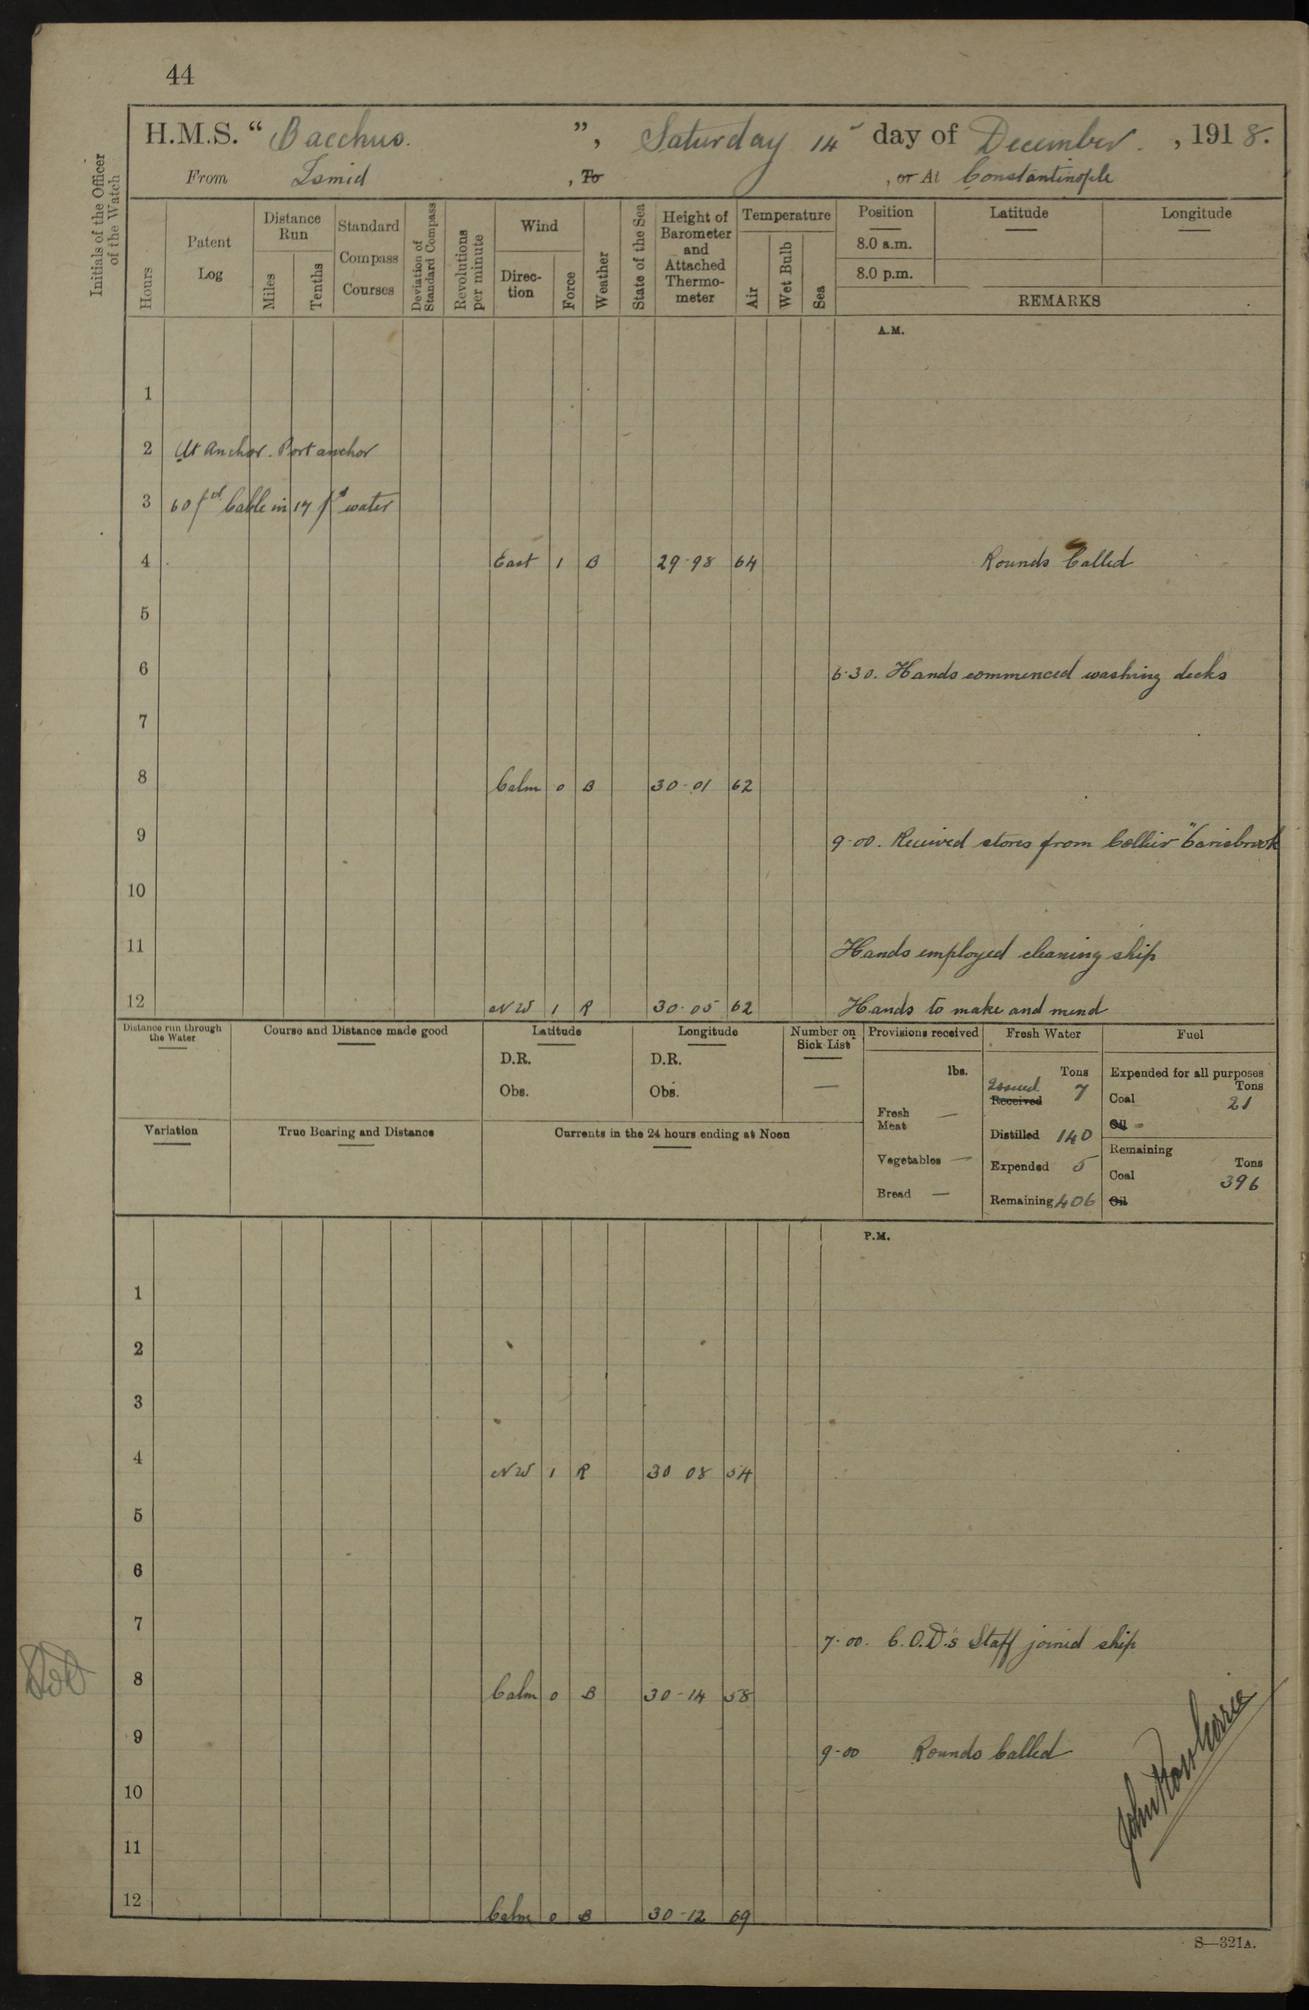 44
H.M.S. “Bacchus.”, Saturday 14 day of December. , 1918.
From Ismid , To , or At Constantinople
Initials of the Officer of the Watch
Hours
Patent Log
Distance Run
Miles
Tenths
Standard Compass Courses
Deviation of Standard Compass
Revolutions per minute
Wind
Direction
Force
Weather
State of the Sea
Height of Barometer and Attached Thermo-meter
Temperature
Air
Wet Bulb
Sea
Position
Latitude
Longitude
8.0 a.m.
8.0 p.m.
REMARKS
A.M.
1
2 At Anchor. Port anchor
3 60 fms Cable in 17 fms water
4 East 1 B 29·98 64 Rounds Called
5
6 6·30. Hands commenced washing decks
7
8 Calm 0 B 30·01 62
9 9·00. Received stores from Collier "Carisbrook
10
11 Hands employed cleaning ship
12 NW 1 R 30·05 62 Hands to make and mend
Distance run through the Water
Course and Distance made good
Latitude
D.R.
Obs.
Longitude
D.R.
Obs.
Number on Sick List
—
Provisions received
lbs.
Fresh Meat —
Vegetables —
Bread —
Fresh Water
Tons
Issued 7
Received
Distilled 140
Expended 5
Remaining 406
Fuel
Expended for all purposes
Tons
Coal 21
Oil -
Remaining
Tons
Coal 396
Oil
Variation
True Bearing and Distance
Currents in the 24 hours ending at Noon
P.M.
1
2
3
4 NW 1 R 30 08 54
5
6
7 7·00. C.O.D.'s Staff joined ship
8 Calm 0 B 30-14 58
9 9-00 Rounds Called
10
11
12 Calm 0 B 30-12 69
S—321A.